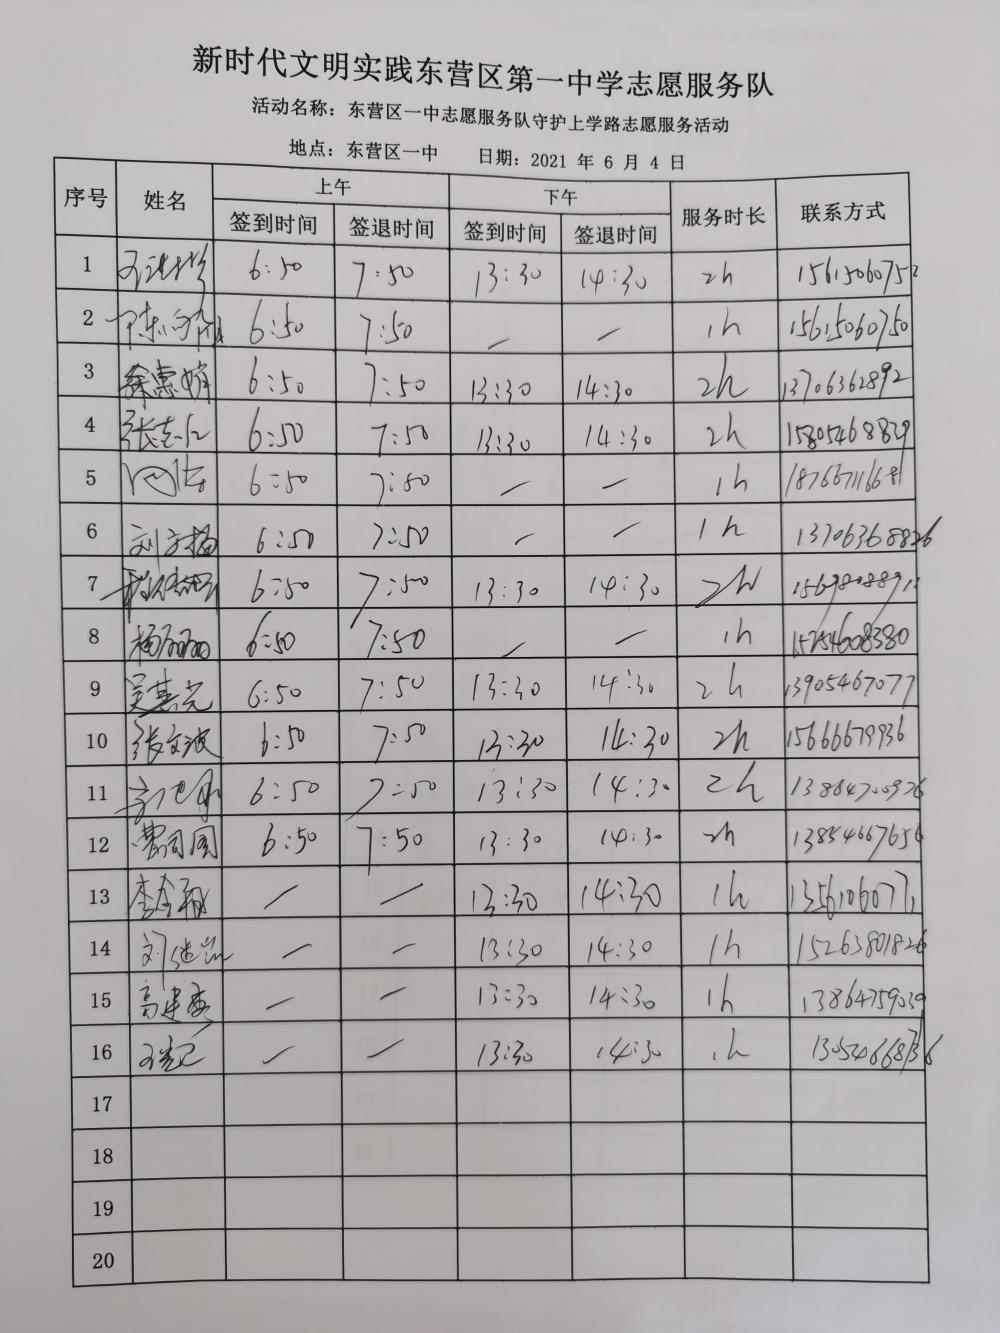 新时代文明实践东营区第一中学志愿服务队
活动名称：东营区一中志愿服务队守护上学路志愿服务活动
地点：东营区一中 日期：2021 年 6 月 4 日
序号 姓名 上午 下午 服务时长 联系方式
签到时间 签退时间 签到时间 签退时间
1 6:50 7:50 13:30 14:30 2h 1561506075
2 6:50 7:50 — — 1h 15615060750
3 徐惠娟 6:50 7:50 13:30 14:30 2h 13706362892
4 张志仁 6:50 7:50 13:30 14:30 2h 15805468829
5 6:50 7:50 — — 1h 18766711668
6 刘方梅 6:50 7:50 — — 1h 13706368826
7 6:50 7:50 13:30 14:30 2h
8 杨丽丽 6:50 7:50 — — 1h 15254608380
9 吴基光 6:50 7:50 13:30 14:30 2h 13905467077
10 张文波 6:50 7:50 13:30 14:30 2h 15666679936
11 6:50 7:50 13:30 14:30 2h 13864700926
12 曹同国 6:50 7:50 13:30 14:30 2h 13854667656
13 — — 13:30 14:30 1h
14 — — 13:30 14:30 1h 15263801826
15 — — 13:30 14:30 1h 13864759039
16 — — 13:30 14:30 1h 13054668736
17
18
19
20